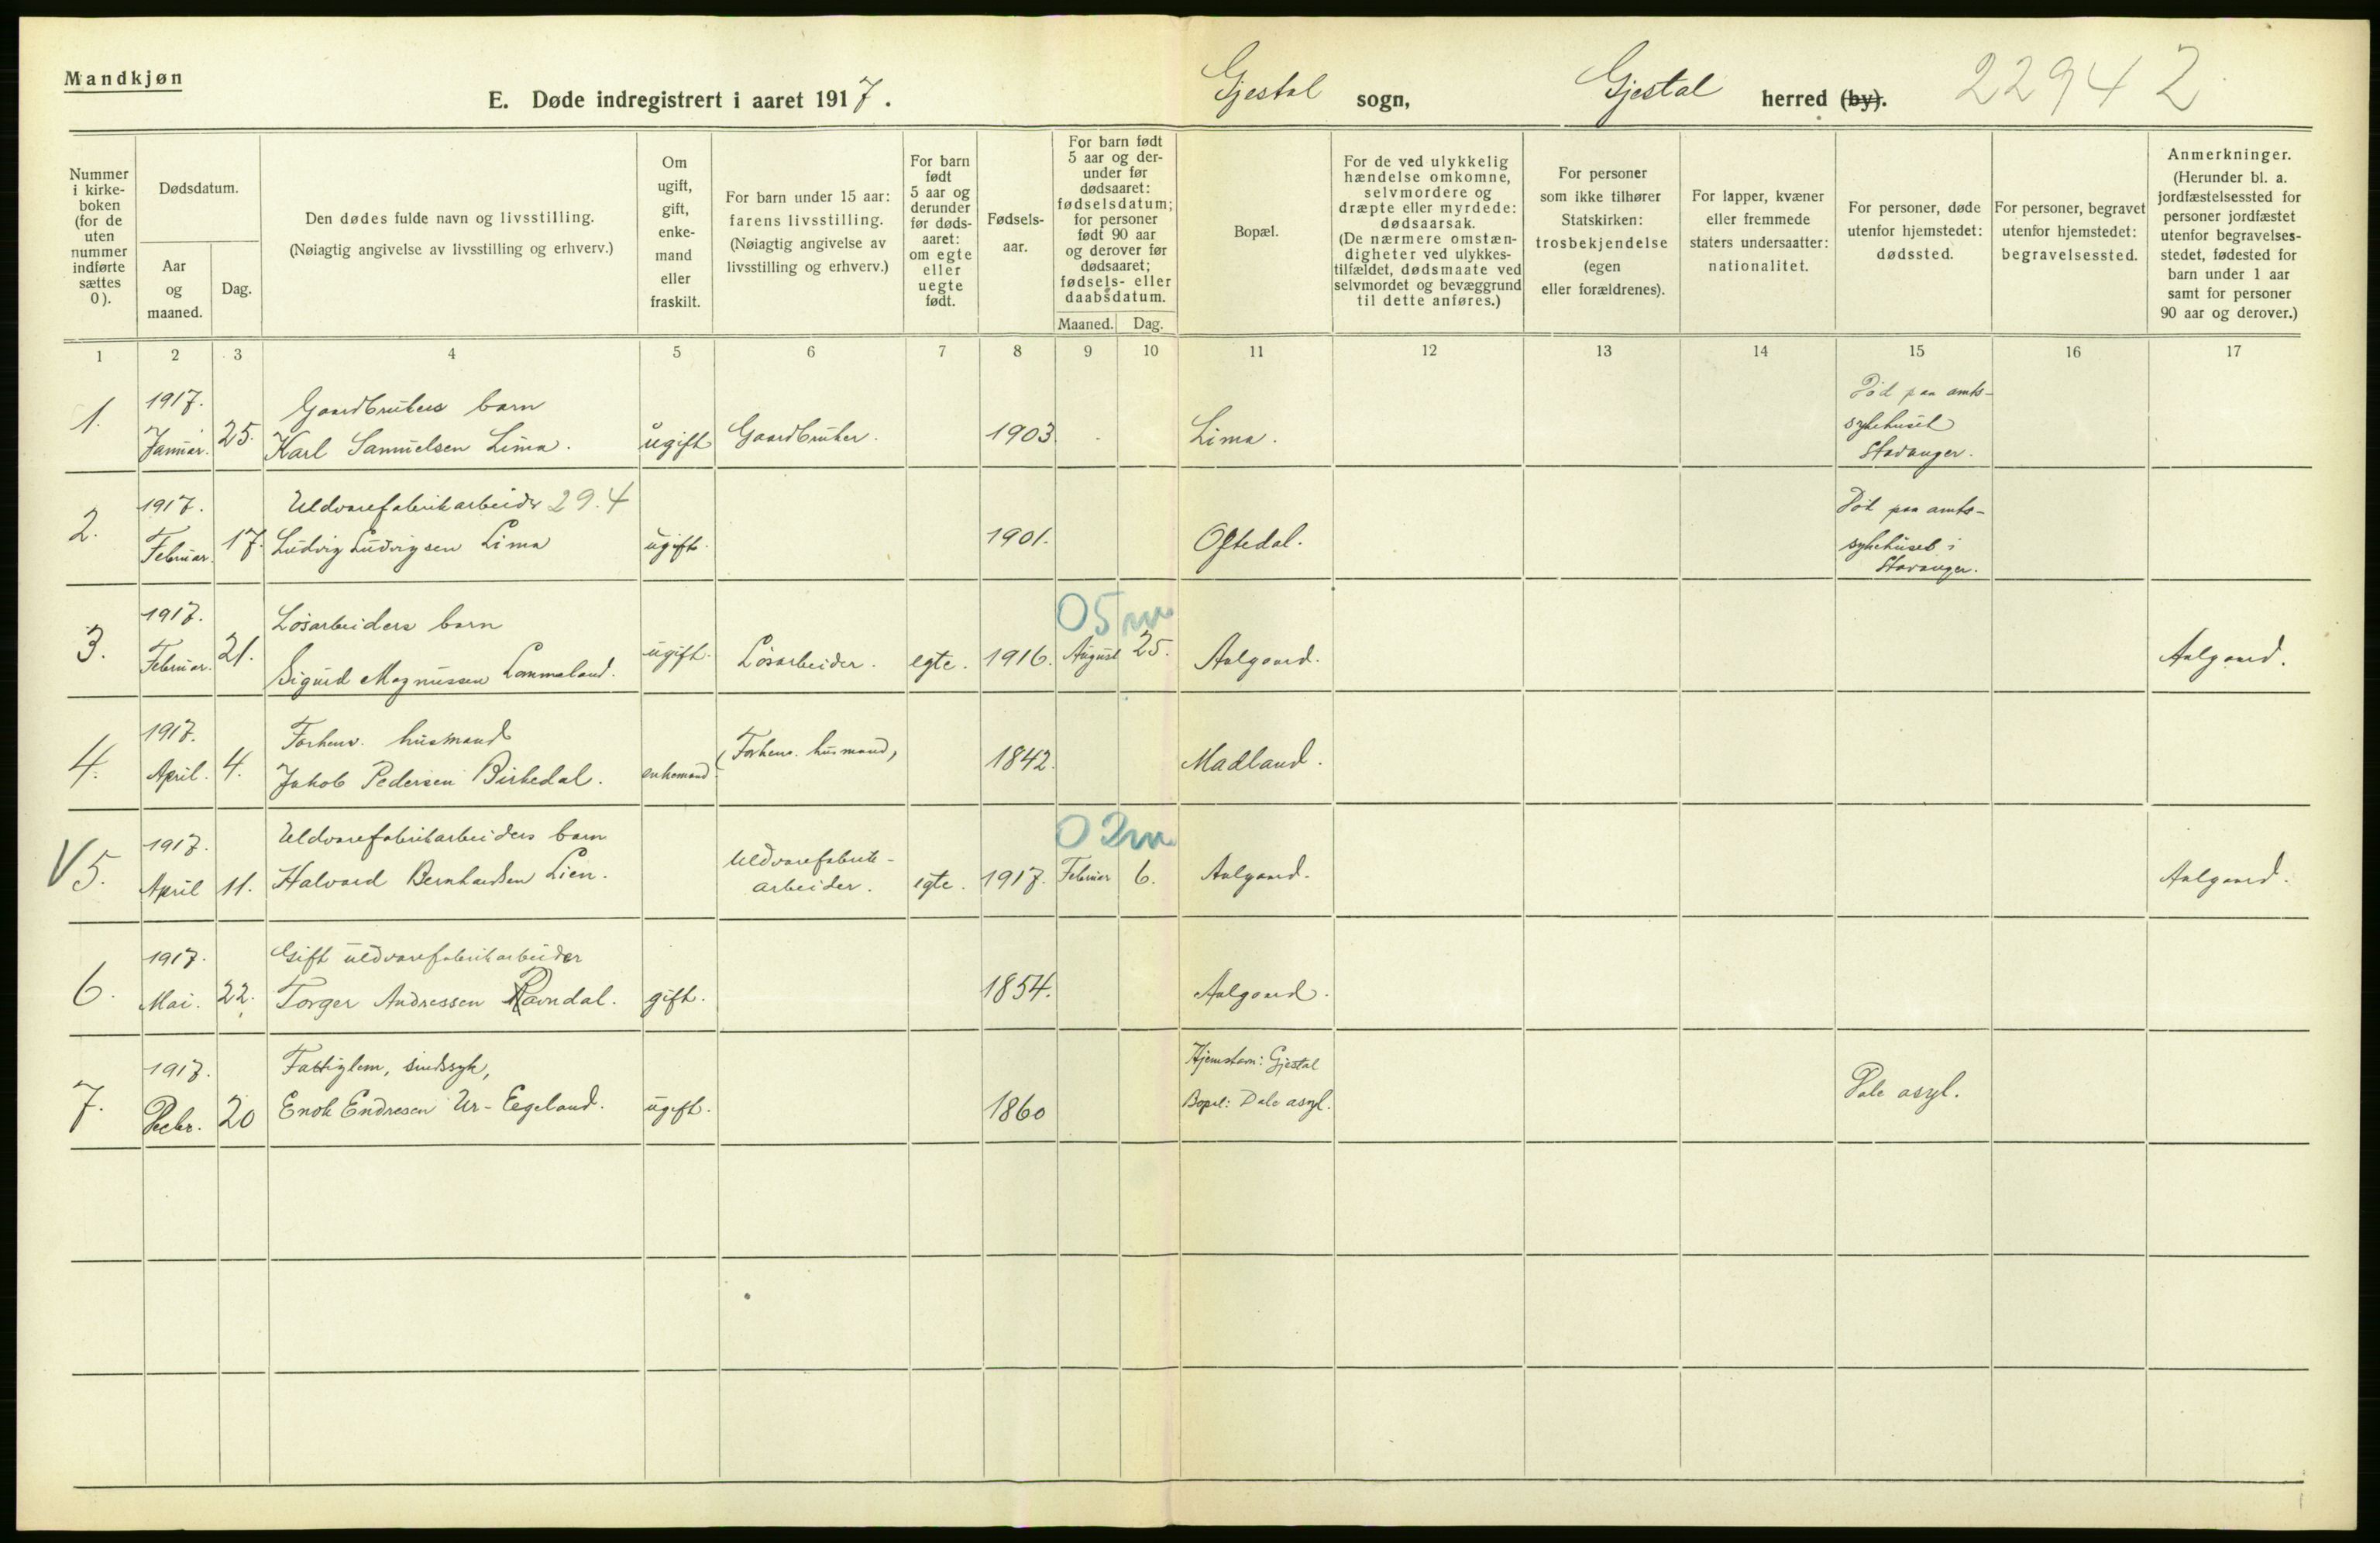 Mandkjøn
E. Døde indregistrert i aaret 1917.
Gjestal sogn,
Gjestal herred (by).
22942
Nummer
i kirke-
boken
(for de
uten
nummer
indførte
sættes
0).
Dødsdatum.
Aar
og
maaned.
Dag.
Den dødes fulde navn og livsstilling.
(Nøiagtig angivelse av livsstilling og erhverv.)
Om
ugift,
gift,
enke-
mand
eller
fraskilt.
For barn under 15 aar:
farens livsstilling.
(Nøiagtig angivelse av
livsstilling og erhverv.)
For barn
født
5 aar og
derunder
før døds-
aaret:
om egte
eller
uegte
født.
Fødsels-
aar.
For barn født
5 aar og der-
under før
dødsaaret:
fødselsdatum;
for personer
født 90 aar
og derover før
dødsaaret;
fødsels- eller
daabsdatum.
Maaned.
Dag.
Bopæl.
For de ved ulykkelig
hændelse omkomne,
selvmordere og
dræpte eller myrdede:
dødsaarsak.
(De nærmere omstæn-
digheter ved ulykkes-
tilfældet, dødsmaate ved
selvmordet og bevæggrund
til dette anføres.)
For personer
som ikke tilhører
Statskirken:
trosbekjendelse
(egen
eller forældrenes).
For lapper, kvæner
eller fremmede
staters undersaatter:
nationalitet.
For personer, døde
utenfor hjemstedet:
dødssted.
For personer, begravet
utenfor hjemstedet:
begravelsessted.
Anmerkninger.
(Herunder bl. a.
jordfæstelsessted for
personer jordfæstet
utenfor begravelses-
stedet, fødested for
barn under 1 aar
samt for personer
90 aar og derover.)
1 2 3 4 5 6 7 8 9 10 11 12 13 14 15 16 17
1.
1917.
Januar.
25.
Gaardbrukers barn
Karl Samuelsen Lima.
ugift
Gaardbruker.
1903.
Lima.
Död paa amts-
sykehuset
Stavanger.
2.
1917.
Februar.
17.
Uldvarefabrikarbeider 29.4
Ludvig Ludvigsen Lima
ugift.
1901.
Oftedal.
Död paa amts-
sykehuset i
Stavanger.
3.
1917.
Februar.
21.
Lösarbeiders barn
Sigurd Magnussen Lammeland.
ugift.
Lösarbeider.
egte.
1916.
05 m
August
25.
Aalgaard.
Aalgaard.
4.
1917.
April.
4.
Forhenv. husmand
Jakob Pedersen Birkedal.
enkemand.
(Forhenv. husmand,
1842.
Madland.
V 5.
1917.
April
11.
Uldvarefabrikarbeiders barn
Halvard Bernhardsen Lien.
Uldvarefabrik-
arbeider.
egte.
1917.
02m
Februar
6.
Aalgaard.
Aalgaard.
6.
1917.
Mai.
22.
Gift uldvarefabrikarbeider
Torger Andreassen Ravndal.
gift.
1854.
Aalgaard.
7.
1917.
Decbr.
20
Fattiglem, sindssyk,
Enok Endresen Ur-Eegeland.
ugift.
1860
Hjemstavn: Gjestal
Bopæl: Dale asyl.
Dale asyl.